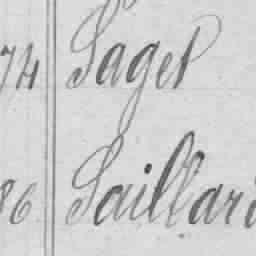 74 Saget
86 Saillard